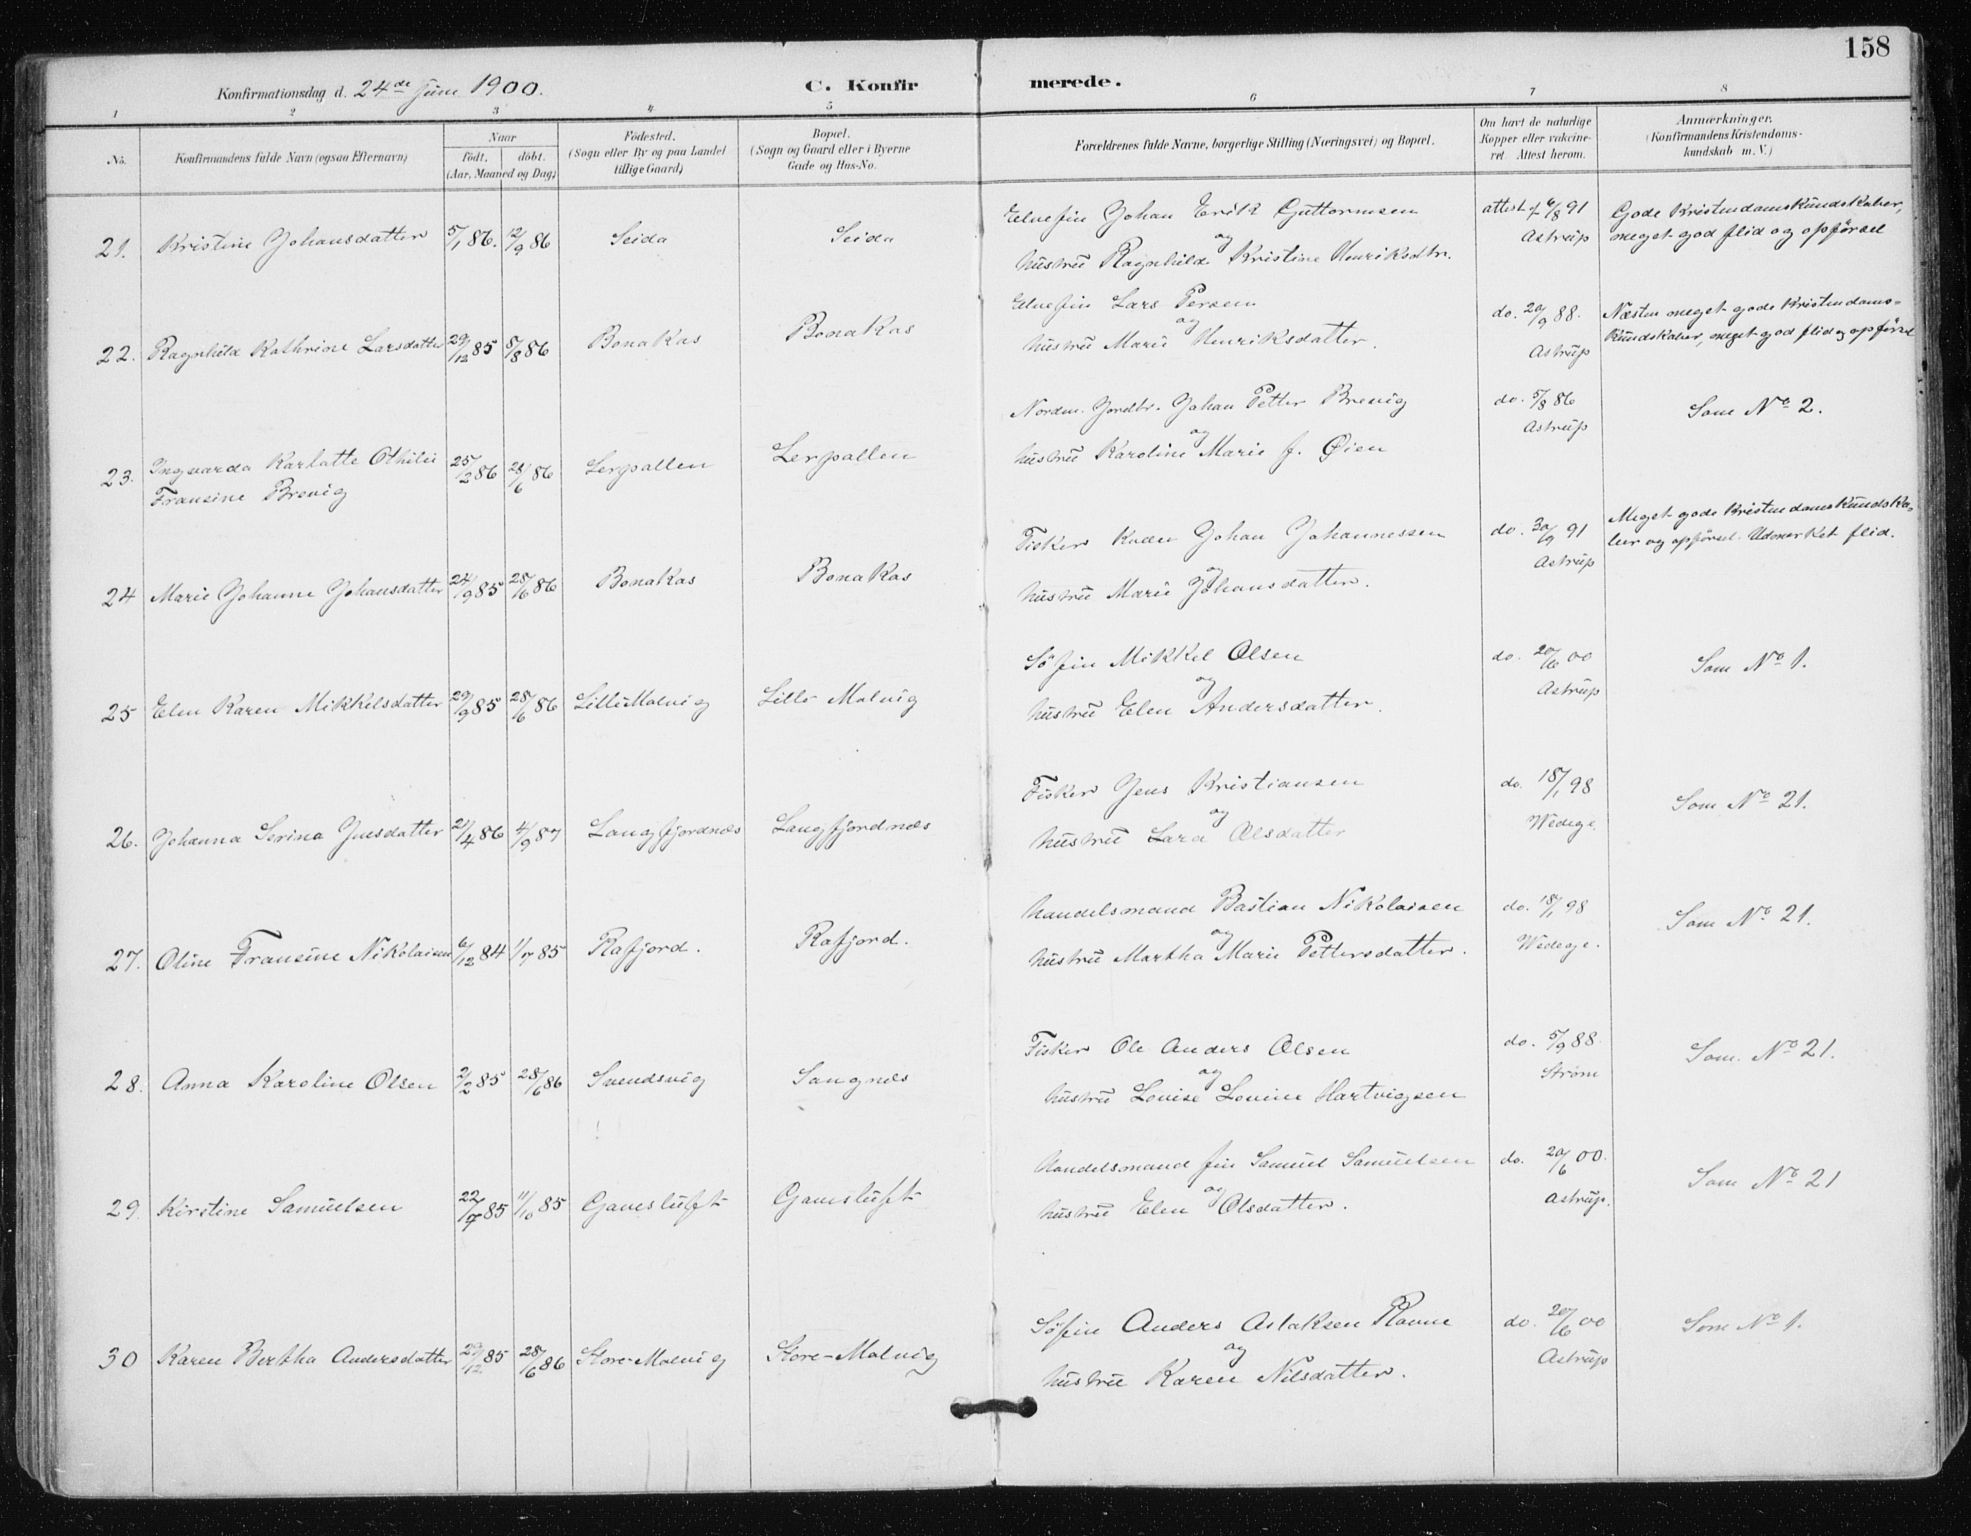 158
Konfirmationsdag d. 24de Juni 1900.
C. Konfirmerede.
1 2 3 4 5 6 7 8
No. Konfirmandens fulde Navn (ogsaa Efternavn) Naar födt, döbt. (Aar, Maaned og Dag) Födested. (Sogn eller By og paa Landet tillige Gaard) Bopæl. (Sogn og Gaard eller i Byerne Gade og Hus-No. Forældrenes fulde Navne, borgerlige Stilling (Næringsvei) og Bopæl. Om havt de naturlige Kopper eller vakcineret. Attest herom. Anmærkninger. (Konfirmandens Kristendomskundskab m. V.)
21. Kristine Johansdatter 5/1 86. 12/9 86 Seida Seida
Elvefin Johan Erik Guttormsen
og
hustru Ragnhild Kristine Henriksdtr.
attest af 6/8 91
Astrup
Gode Kristendomskundskaber,
meget god flid og opførsel
22. Ragnhild Kathrine Larsdatter 29/12 85 8/8 86 Bonakas Bonakas
Elvefin Lars Persen
og
hustru Marie Henriksdatter.
do. 20/9 88.
Astrup
Næsten meget gode Kristendoms-
kundskaber, meget god flid og opførsel
23. Ingvarda Karlatte Othilie
Fransine Brevig
25/2 86 28/6 86 Lerpallen Lerpallen
Nordm. Jordbr. Johan Petter Brevig
og
hustru Karoline Marie f. Øien
do. 5/8 86
Astrup
Som No 2.
24 Marie Johanne Johansdatter 24/9 85 28/6 86 Bonakas Bonakas
Fisker Kvæn Johan Johannessen
og
hustru Marie Johansdatter.
do. 30/9 91
Astrup
Meget gode Kristendomskundska-
ber og opførsel. Udmerket flid.
25 Elen Karen Mikkelsdatter 29/9 85 28/6 86 Lille Molvig Lille Molvig
Søfin Mikkel Olsen
og
hustru Elen Andersdatter.
do. 20/6 00
Astrup
Som No 1.
26. Johanna Serina Jensdatter 21/4 86 4/9 87 Langfjordnæs Langfjordnæs
Fisker Jens Kristiansen
og
hustru Lara Olsdatter
do. 18/1 98
Wedege.
Som No 21.
27. Oline Fransine Nikolaisen 6/12 84 1/7 85 Rafjord. Rafjord.
Handelsmand Bastian Nikolaisen
og
hustru Martha Marie Pettersdatter.
do. 18/1 98
Wedege.
Som No 21.
28. Anna Karoline Olsen 2/2 85 28/6 86 Svendsvig Sangnes
Fisker Ole Anders Olsen
og
hustru Lovise Lovine Hartvigsen
do. 5/9 88.
Strøm
Som No 21.
29. Kirstine Samuelsen 22/7 85 11/10 85 Gameluft Gameluft
Handelsmand fin Samuel Samuelsen
og
hustru Elen Olsdatter.
do. 20/6 00.
Astrup.
Som No 21
30 Karen Bertha Andersdatter 29/12 85 28/6 86 Store-Molvig Store-Molvig
Søfin Anders Aslaksen Ravne
og
hustru Karen Nilsdatter.
do. 20/6 00
Astrup
Som No 1.